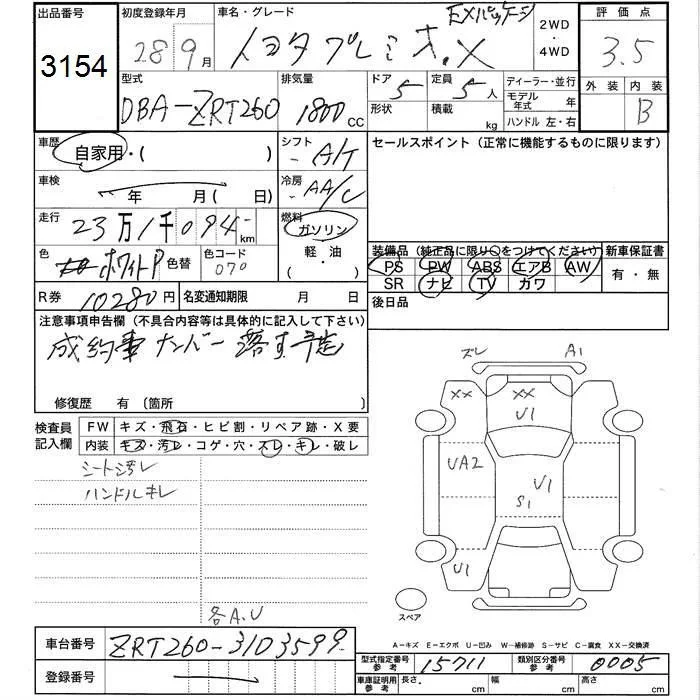 出品番号 初度登録年月 車名・グレード 2WD 評価点
3154 28 9月 トヨタ プレミオ.X EXパッケージ ・ 3.5
4WD
型式 排気量 ドア 定員 ディーラー・並行 外装 内装
DBA-ZRT260 1800 CC 5 5人 モデル年式 年 B
形状 積載 kg ハンドル 左・右
車歴 自家用・( ) シフト A/T セールスポイント (正常に機能するものに限ります)
車検 年 月( 日) 冷房 AA/C
走行 23万1千094 km 燃料 ガソリン
軽・油
・
色 ホワイトP 色替 色コード 070
装備品 (純正品に限り○をつけてください) 新車保証書
PS PW ABS エアB AW 有・無
SR ナビ TV カワ
R券 10280円 名変通知期限 月 日 後日品
注意事項申告欄 (不具合内容等は具体的に記入して下さい)
成約車 ナンバー 落す予定
修復歴 有 (箇所 )
検査員記入欄 FW キズ・飛石・ヒビ割・リペア跡・X要
内装 キズ・汚レ・コゲ・穴・スレ・キレ・破レ
シート汚レ
ハンドルキレ
各A.U
ズレ A1
XX XX
U1
UA2
U1
S1
U1
スペア
車台番号 ZRT260-3103599
登録番号
A－キズ E－エクボ U－凹み W－補修跡 S－サビ C－腐食 XX－交換済
型式指定番号参考 15711 類別区分番号参考 0005
車庫証明用参考 長さ. cm 幅 cm 高さ cm